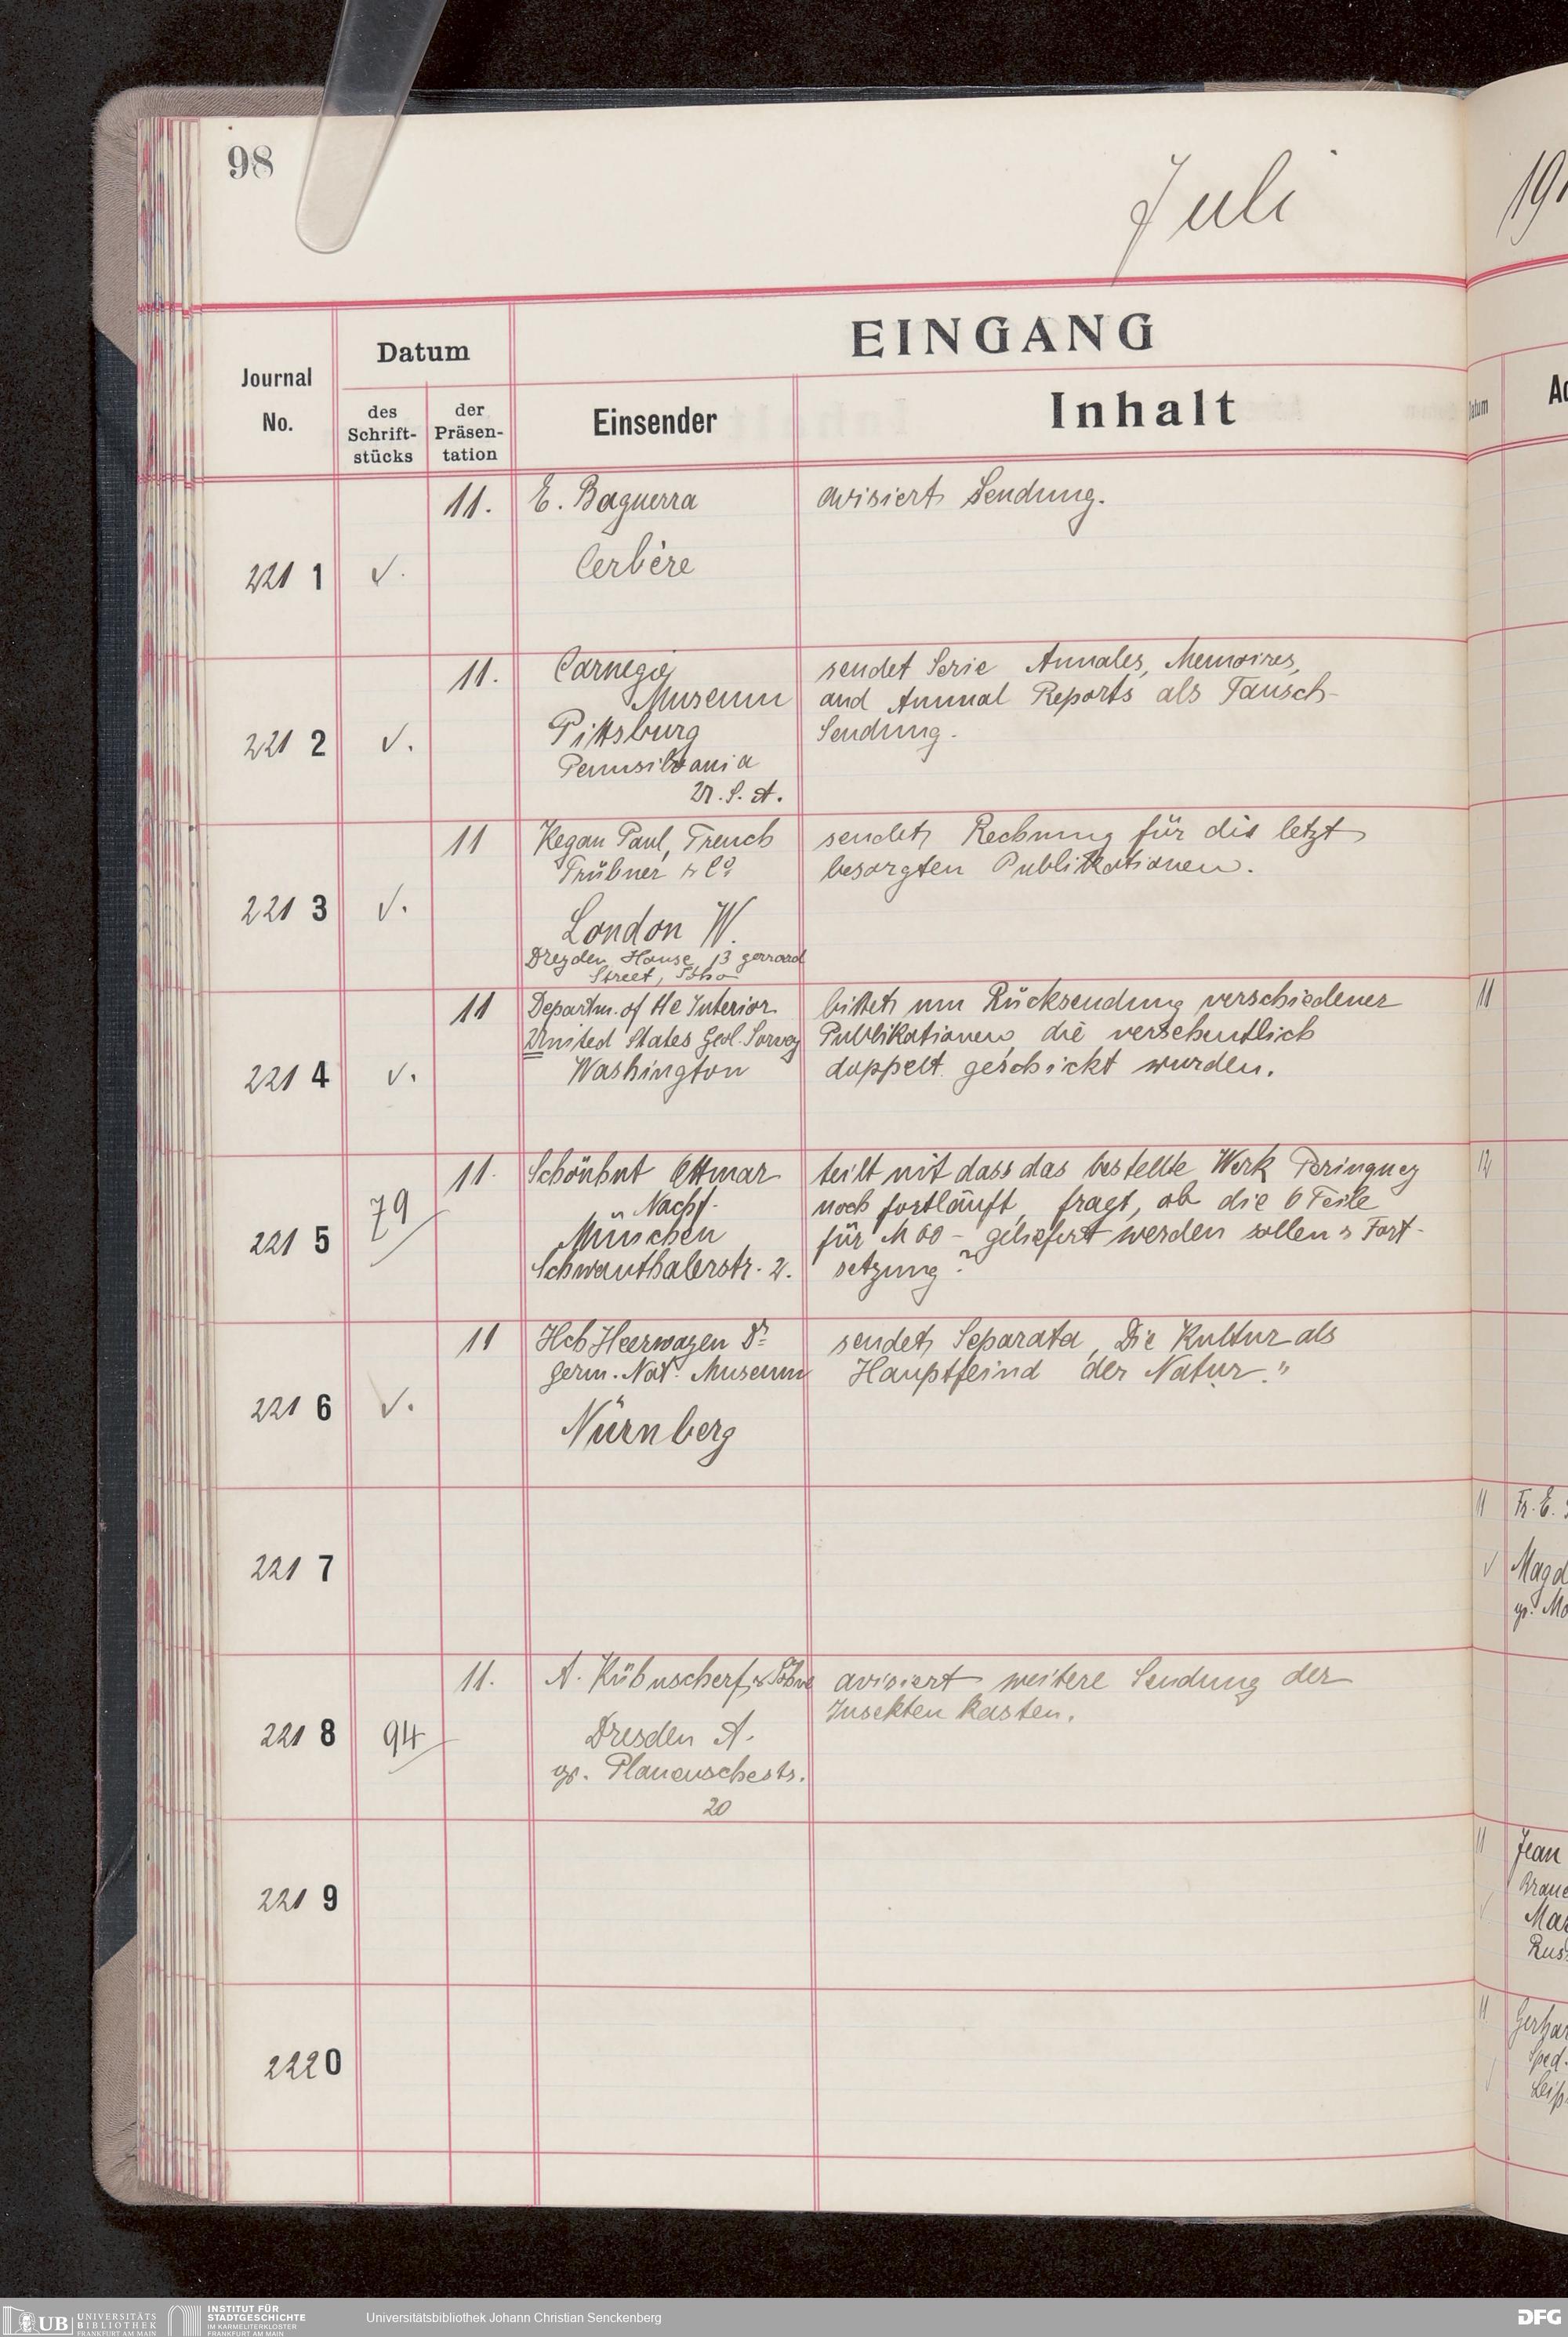 98
Juli
191
EINGANG
Datum
Journal
No.
des
Schrift-
stücks
der
Präsen-
tation
Einsender
Inhalt
Datum
2211
✓.
11.
E. Baguerra
Cerbère
avisiert Sendung.
2212
✓.
11.
Carnegie
Museum
Pittsburg
Pennsilvania
U. S. A.
sendet Serie Annales, Memoires,
and Annual Reports als Tausch-
Sendung.
2213
✓.
11
Kegan Paul, Trench
Trübner & Co.
London W.
Dreyden House, 13 gerrard
Street, Soho
sendet Rechnung für die letzt
besorgten Publikationen.
2214
✓.
11
Departm. of the Interior
United States Geol. Survey
Washington
bittet um Rücksendung verschiedener
Publikationen, die versehentlich
doppelt geschickt wurden.
11
2215
79
11.
Schönhut Ottmar
" Nachf.
München
Schwanthalerstr. 2.
teilt mit dass das bestellte Werk Peringuey
noch fortläuft, fragt, ob die 6 Teile
für M 60 - geliefert werden sollen & Fort-
setzung?
12
2216
✓.
11
Hch Heerwagen Dr
germ. Nat. Museum
Nürnberg
sendet Separata, Die Kultur als
Hauptfeind der Natur."
2217
11
Fr. E.
✓
Magd
2218
94
11.
A. Kühnscherf & Söhne
Dresden A.
gr. Plauenschestr.
20
avisiert weitere Sendung der
Insektenkasten.
2219
11
Jean
Mar
Rus
2220
11
Gerhar
Sped.
Leip
UB
UNIVERSITÄTS
BIBLIOTHEK
FRANKFURT AM MAIN
INSTITUT FÜR
STADTGESCHICHTE
IM KARMELITERKLOSTER
FRANKFURT AM MAIN
Universitätsbibliothek Johann Christian Senckenberg
DFG